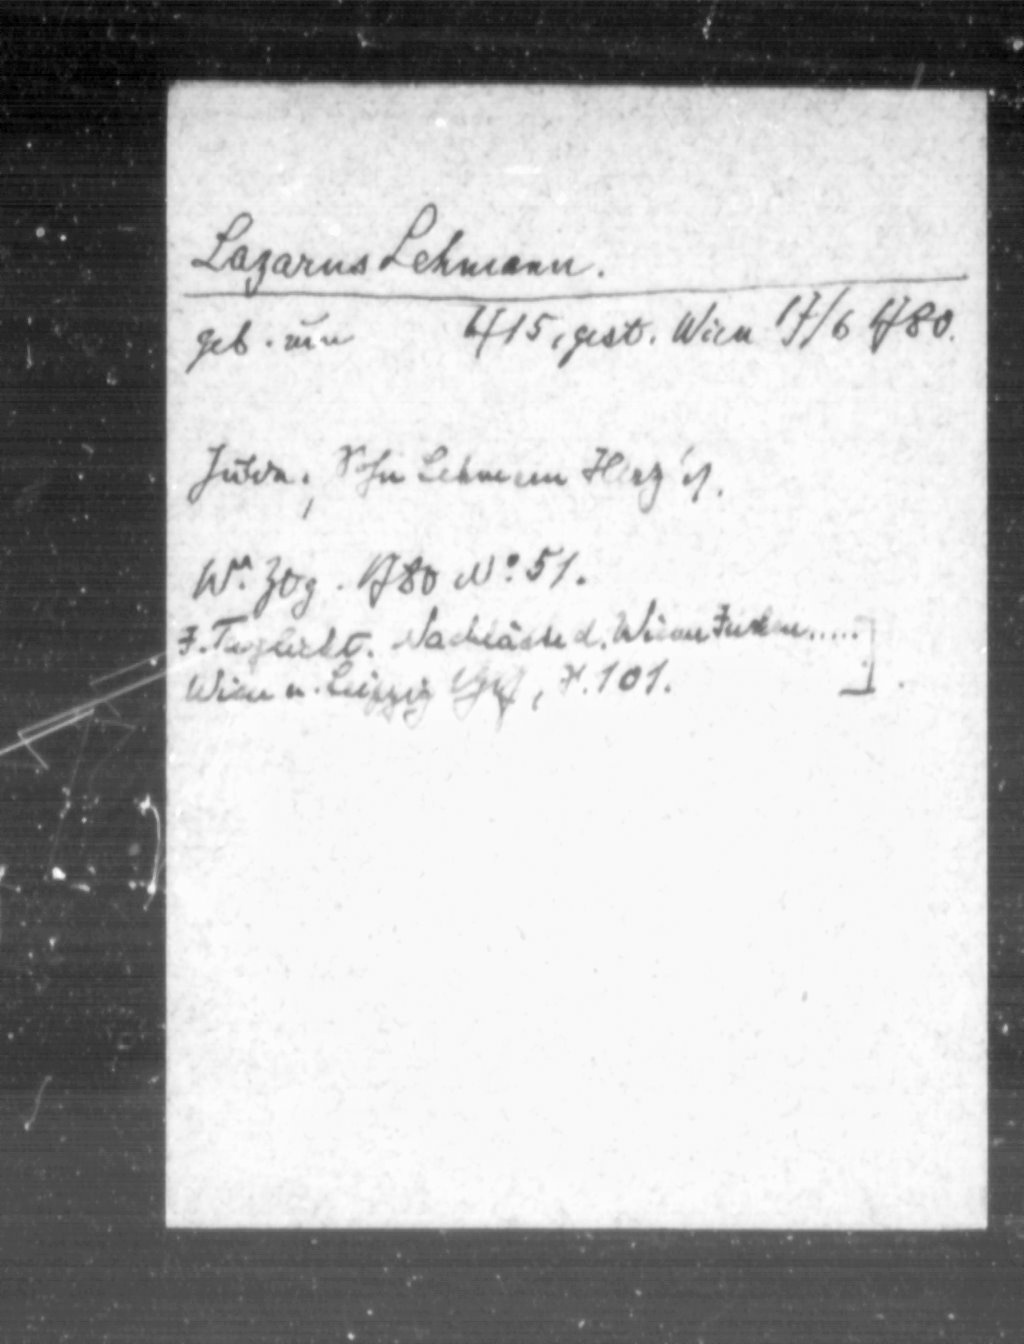 Lazarus Lehmann.
geb. um 1715, gest. Wien 17/6 1780.
Jude; Sohn Lehmann Herz's.
Wr. Ztg. 1780 No. 51.
J. Taglicht. Nachlässe d. Wiener Juden.....
Wien u. Leipzig, S. 101.